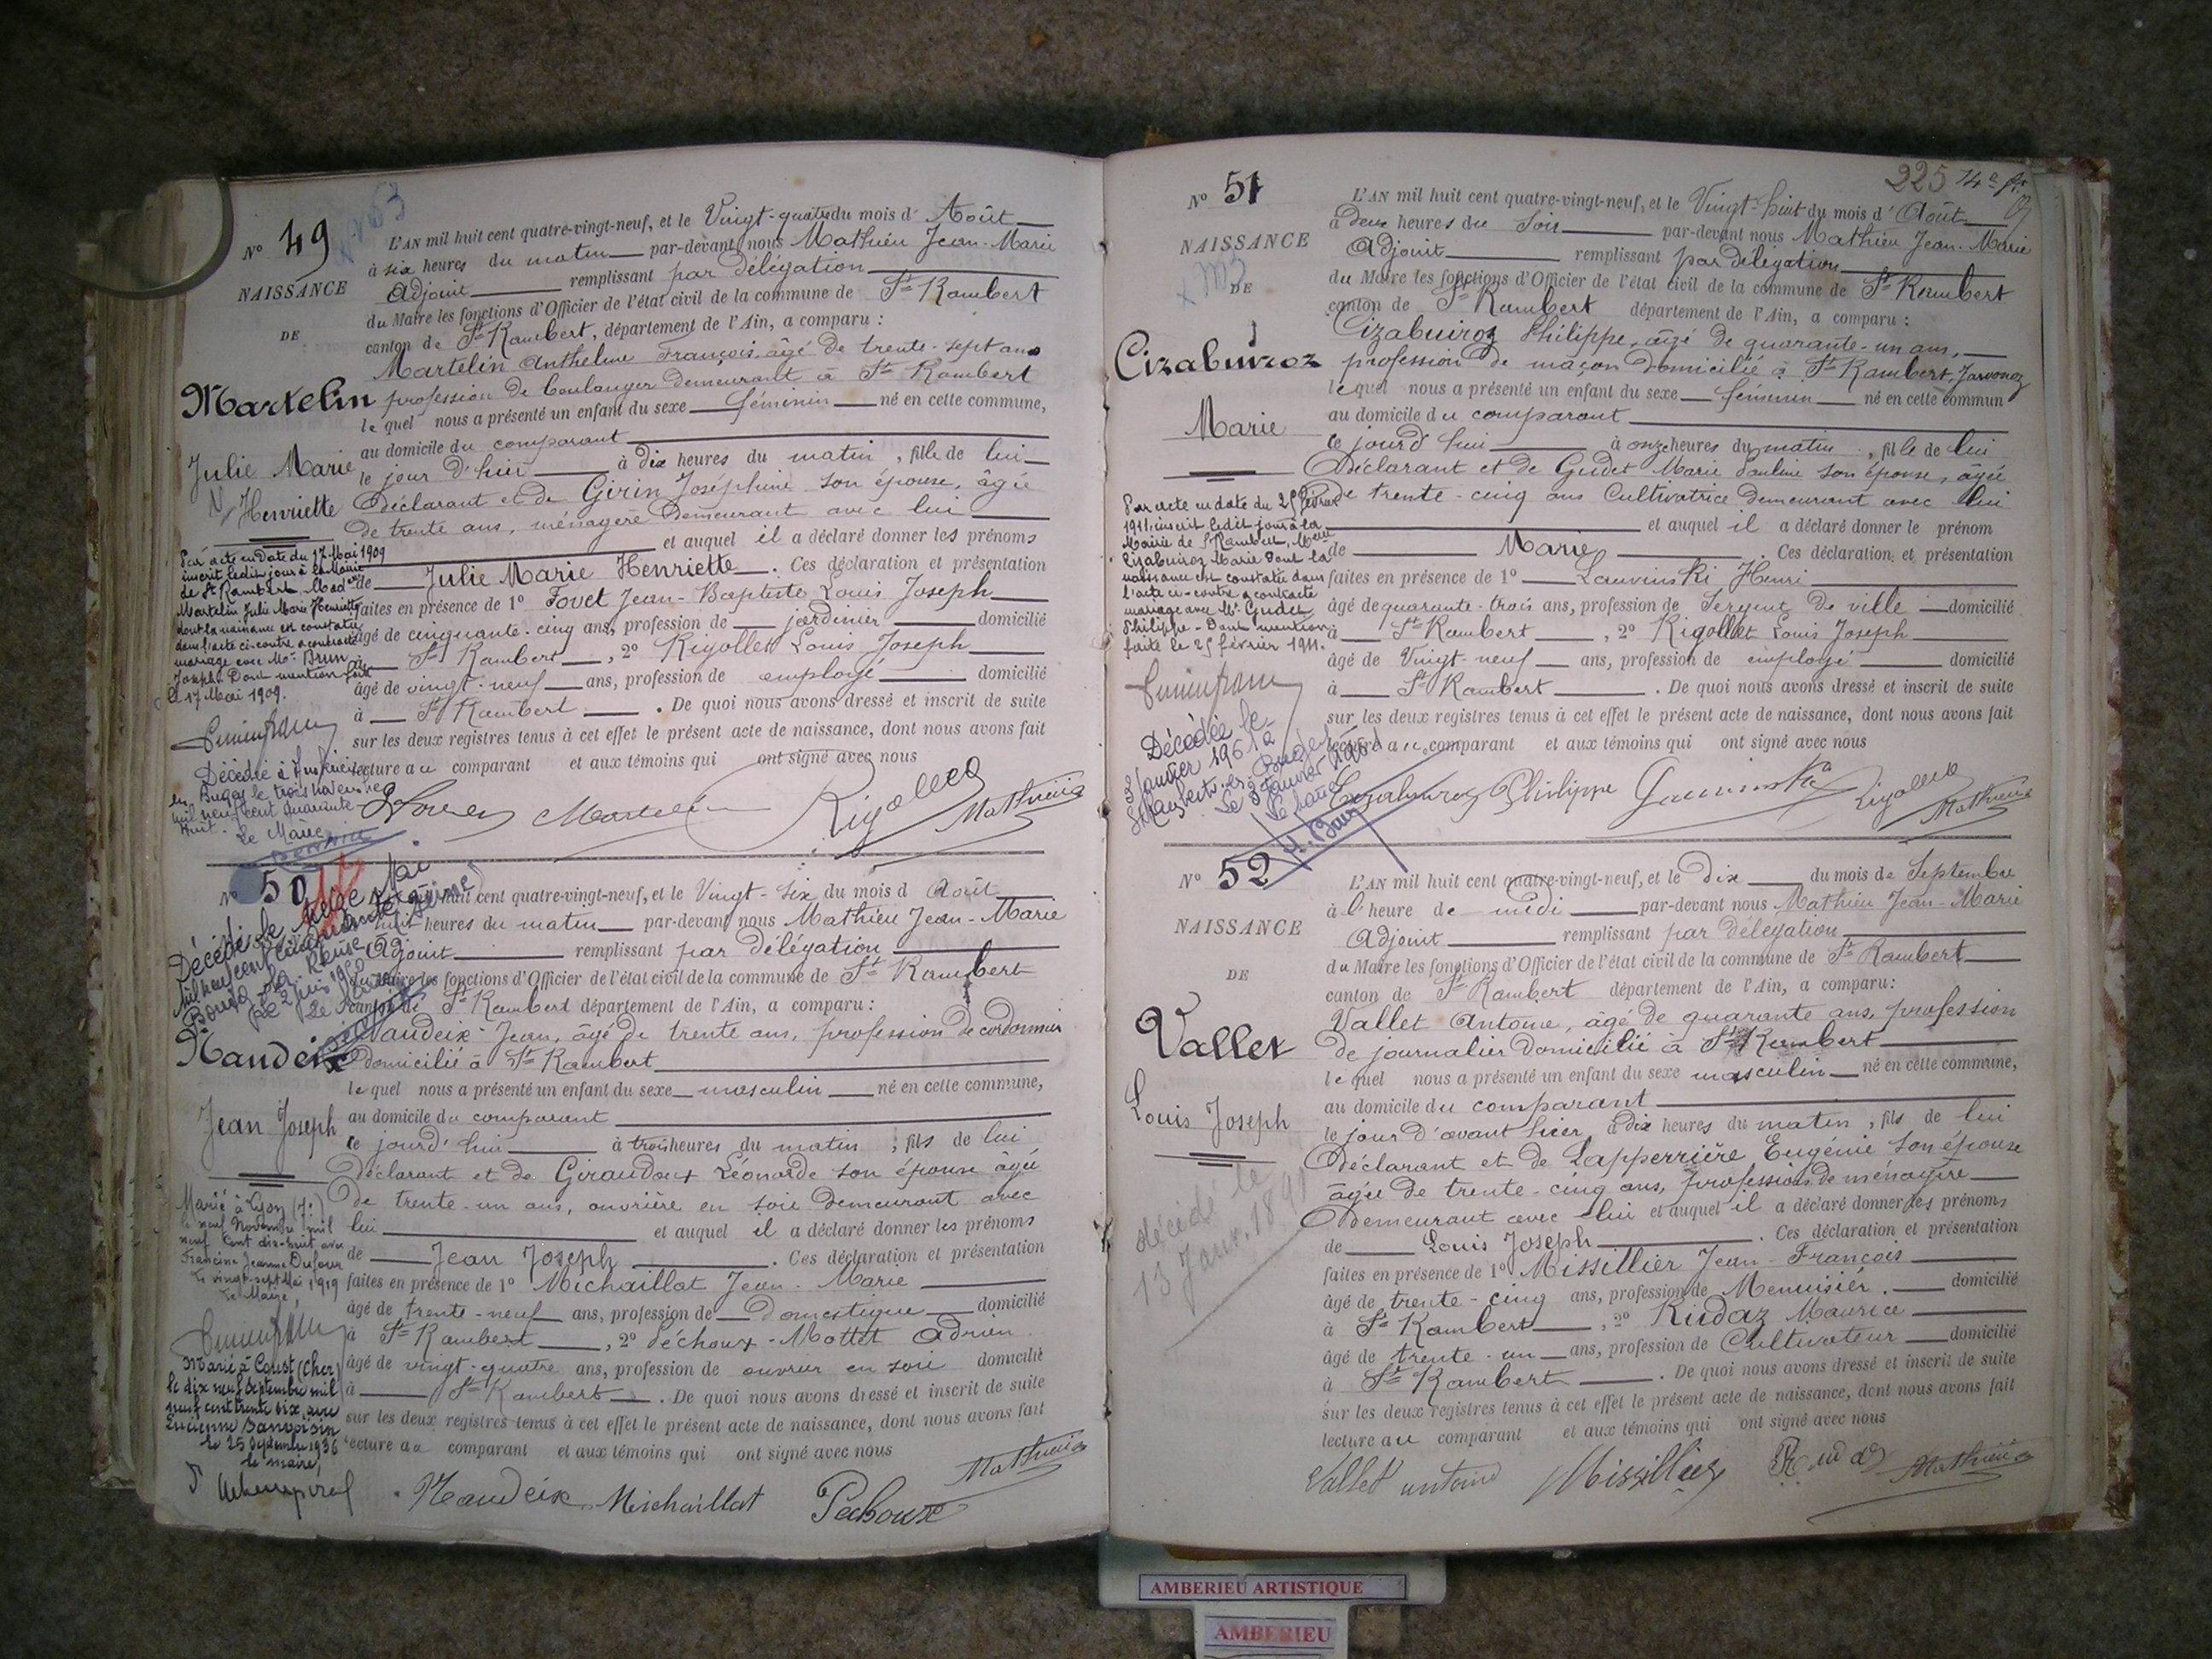 N° 49
NAISSANCE
DE
Martelin
Julie Marie
Henriette
Par acte en date du 17 Mai 1909
inscrit ledit jour à la Mairie
de St Rambert, Mad
Martelin Julie Marie Henriette
dont la naissance est constatée
dans l'acte ci-contre a contracté
mariage avec Mr. Brun
Joseph. Dont mention faite
le 17 Mai 1909.
Décédée à
en Bugey le trois novembre
mil neuf cent quarante
huit.
Le Maire
L'AN mil huit cent quatre-vingt-neuf, et le Vingt-quatre du mois d'Août
à six heures du matin par-devant nous Mathieu Jean-Marie
Adjoint remplissant par délégation
du Maire les fonctions d'Officier de l'état civil de la commune de St Rambert
canton de St Rambert, département de l'Ain, a comparu :
Martelin Anthelme François, âgé de trente-sept ans
profession de boulanger demeurant à St Rambert
lequel nous a présenté un enfant du sexe féminin né en cette commune,
au domicile du comparant
le jour d'hier à dix heures du matin, fille de lui
Déclarant et de Girin Joséphine son épouse, âgée
de trente ans, ménagère demeurant avec lui
et auquel il a déclaré donner les prénoms
de Julie Marie Henriette. Ces déclaration et présentation
faites en présence de 1° Fovet Jean-Baptiste Louis Joseph
âgé de cinquante-cinq ans, profession de jardinier domicilié
à St Rambert, 2° Rigollet Louis Joseph
âgé de vingt-neuf ans, profession de employé domicilié
à St Rambert. De quoi nous avons dressé et inscrit de suite
sur les deux registres tenus à cet effet le présent acte de naissance, dont nous avons fait
lecture au comparant et aux témoins qui ont signé avec nous
Martelin Rigollet Mathieu
N° 50
Décédé le seize Mai
mil neuf cent
Bourg
Le 2 juin
Le Maire
Naudeix
Jean Joseph
Marié à Lyon
le neuf Novembre mil
neuf cent dix-huit avec
Francine Jeanne Dufour
Le vingt-sept Mai 1919
Le Maire,
Marié à Coust (Cher)
le dix neuf Septembre mil
neuf cent trente six, avec
Lucienne
Le 25 Septembre 1936
le maire,
huit cent quatre-vingt-neuf, et le Vingt-six du mois d'Août
huit heures du matin par-devant nous Mathieu Jean-Marie
Adjoint remplissant par délégation
du Maire les fonctions d'Officier de l'état civil de la commune de St Rambert
canton de St Rambert département de l'Ain, a comparu :
Naudeix Jean, âgé de trente ans, profession de cordonnier
domicilié à St Rambert
lequel nous a présenté un enfant du sexe masculin né en cette commune,
au domicile du comparant
ce jourd'hui à trois heures du matin, fils de lui
Déclarant et de Giraudoux Léonarde son épouse âgée
de trente-un ans, ouvrière en soie demeurant avec
lui et auquel il a déclaré donner les prénoms
de Jean Joseph. Ces déclaration et présentation
faites en présence de 1° Michaillat Jean-Marie
âgé de trente-neuf ans, profession de domestique domicilié
à St Rambert, 2° Péchoux-Mottet Adrien
âgé de vingt-quatre ans, profession de ouvrier en soie domicilié
à St Rambert. De quoi nous avons dressé et inscrit de suite
sur les deux registres tenus à cet effet le présent acte de naissance, dont nous avons fait
lecture au comparant et aux témoins qui ont signé avec nous
Mathieu
Naudeix Michaillat Pechoux
225
N° 51
NAISSANCE
DE
Cizabuiroz
Marie
Par acte en date du 25 février
1911, inscrit ledit jour à la
Mairie de St Rambert, Melle
Cizabuiroz Marie dont la
naissance est constatée dans
l'acte ci-contre a contracté
mariage avec Mr. Gudet
Philippe. Dont mention
faite le 25 février 1911.
Décédée le
2 Janvier 1961 à
St Rambert-en-Bugey
Le 3 Janvier 1961
L'AN mil huit cent quatre-vingt-neuf, et le Vingt-huit du mois d'Août
à deux heures du soir par-devant nous Mathieu Jean-Marie
Adjoint remplissant par délégation
du Maire les fonctions d'Officier de l'état civil de la commune de St Rambert
canton de St Rambert département de l'Ain, a comparu :
Cizabuiroz Philippe, âgé de quarante-un ans,
profession de maçon domicilié à St Rambert, Javornoz
lequel nous a présenté un enfant du sexe féminin né en cette commun
au domicile du comparant
ce jourd'hui à onze heures du matin, fille de lui
Déclarant et de Gudet Marie Pauline son épouse, âgée
de trente-cinq ans Cultivatrice demeurant avec lui
et auquel il a déclaré donner le prénom
de Marie. Ces déclaration et présentation
faites en présence de 1° Lauvinski Henri
âgé de quarante-trois ans, profession de Sergent de ville domicilié
à St Rambert, 2° Rigollet Louis Joseph
âgé de Vingt-neuf ans, profession de employé domicilié
à St Rambert. De quoi nous avons dressé et inscrit de suite
sur les deux registres tenus à cet effet le présent acte de naissance, dont nous avons fait
lecture au comparant et aux témoins qui ont signé avec nous
Cizabuiroz Philippe Rigollet Mathieu
N° 52
NAISSANCE
DE
Vallet
Louis Joseph
décédé le
13 Janv. 1890
L'AN mil huit cent quatre-vingt-neuf, et le dix du mois de Septembre
à l'heure de midi par-devant nous Mathieu Jean-Marie
Adjoint remplissant par délégation
du Maire les fonctions d'Officier de l'état civil de la commune de St Rambert
canton de St Rambert département de l'Ain, a comparu :
Vallet Antoine, âgé de quarante ans, profession
de journalier domicilié à St Rambert
lequel nous a présenté un enfant du sexe masculin né en cette commune,
au domicile du comparant
le jour d'avant hier à dix heures du matin, fils de lui
Déclarant et de Lapperrière Eugénie son épouse
âgée de trente-cinq ans, profession de ménagère
Demeurant avec lui et auquel il a déclaré donner les prénoms
de Louis Joseph. Ces déclaration et présentation
faites en présence de 1° Missillier Jean-François
âgé de trente-cinq ans, profession de Menuisier. domicilié
à St Rambert, 2° Rudaz Maurice
âgé de trente-un ans, profession de Cultivateur domicilié
à St Rambert. De quoi nous avons dressé et inscrit de suite
sur les deux registres tenus à cet effet le présent acte de naissance, dont nous avons fait
lecture au comparant et aux témoins qui ont signé avec nous
Vallet antoine Missillier Rudaz Mathieu
AMBERIEU ARTISTIQUE
AMBERIEU